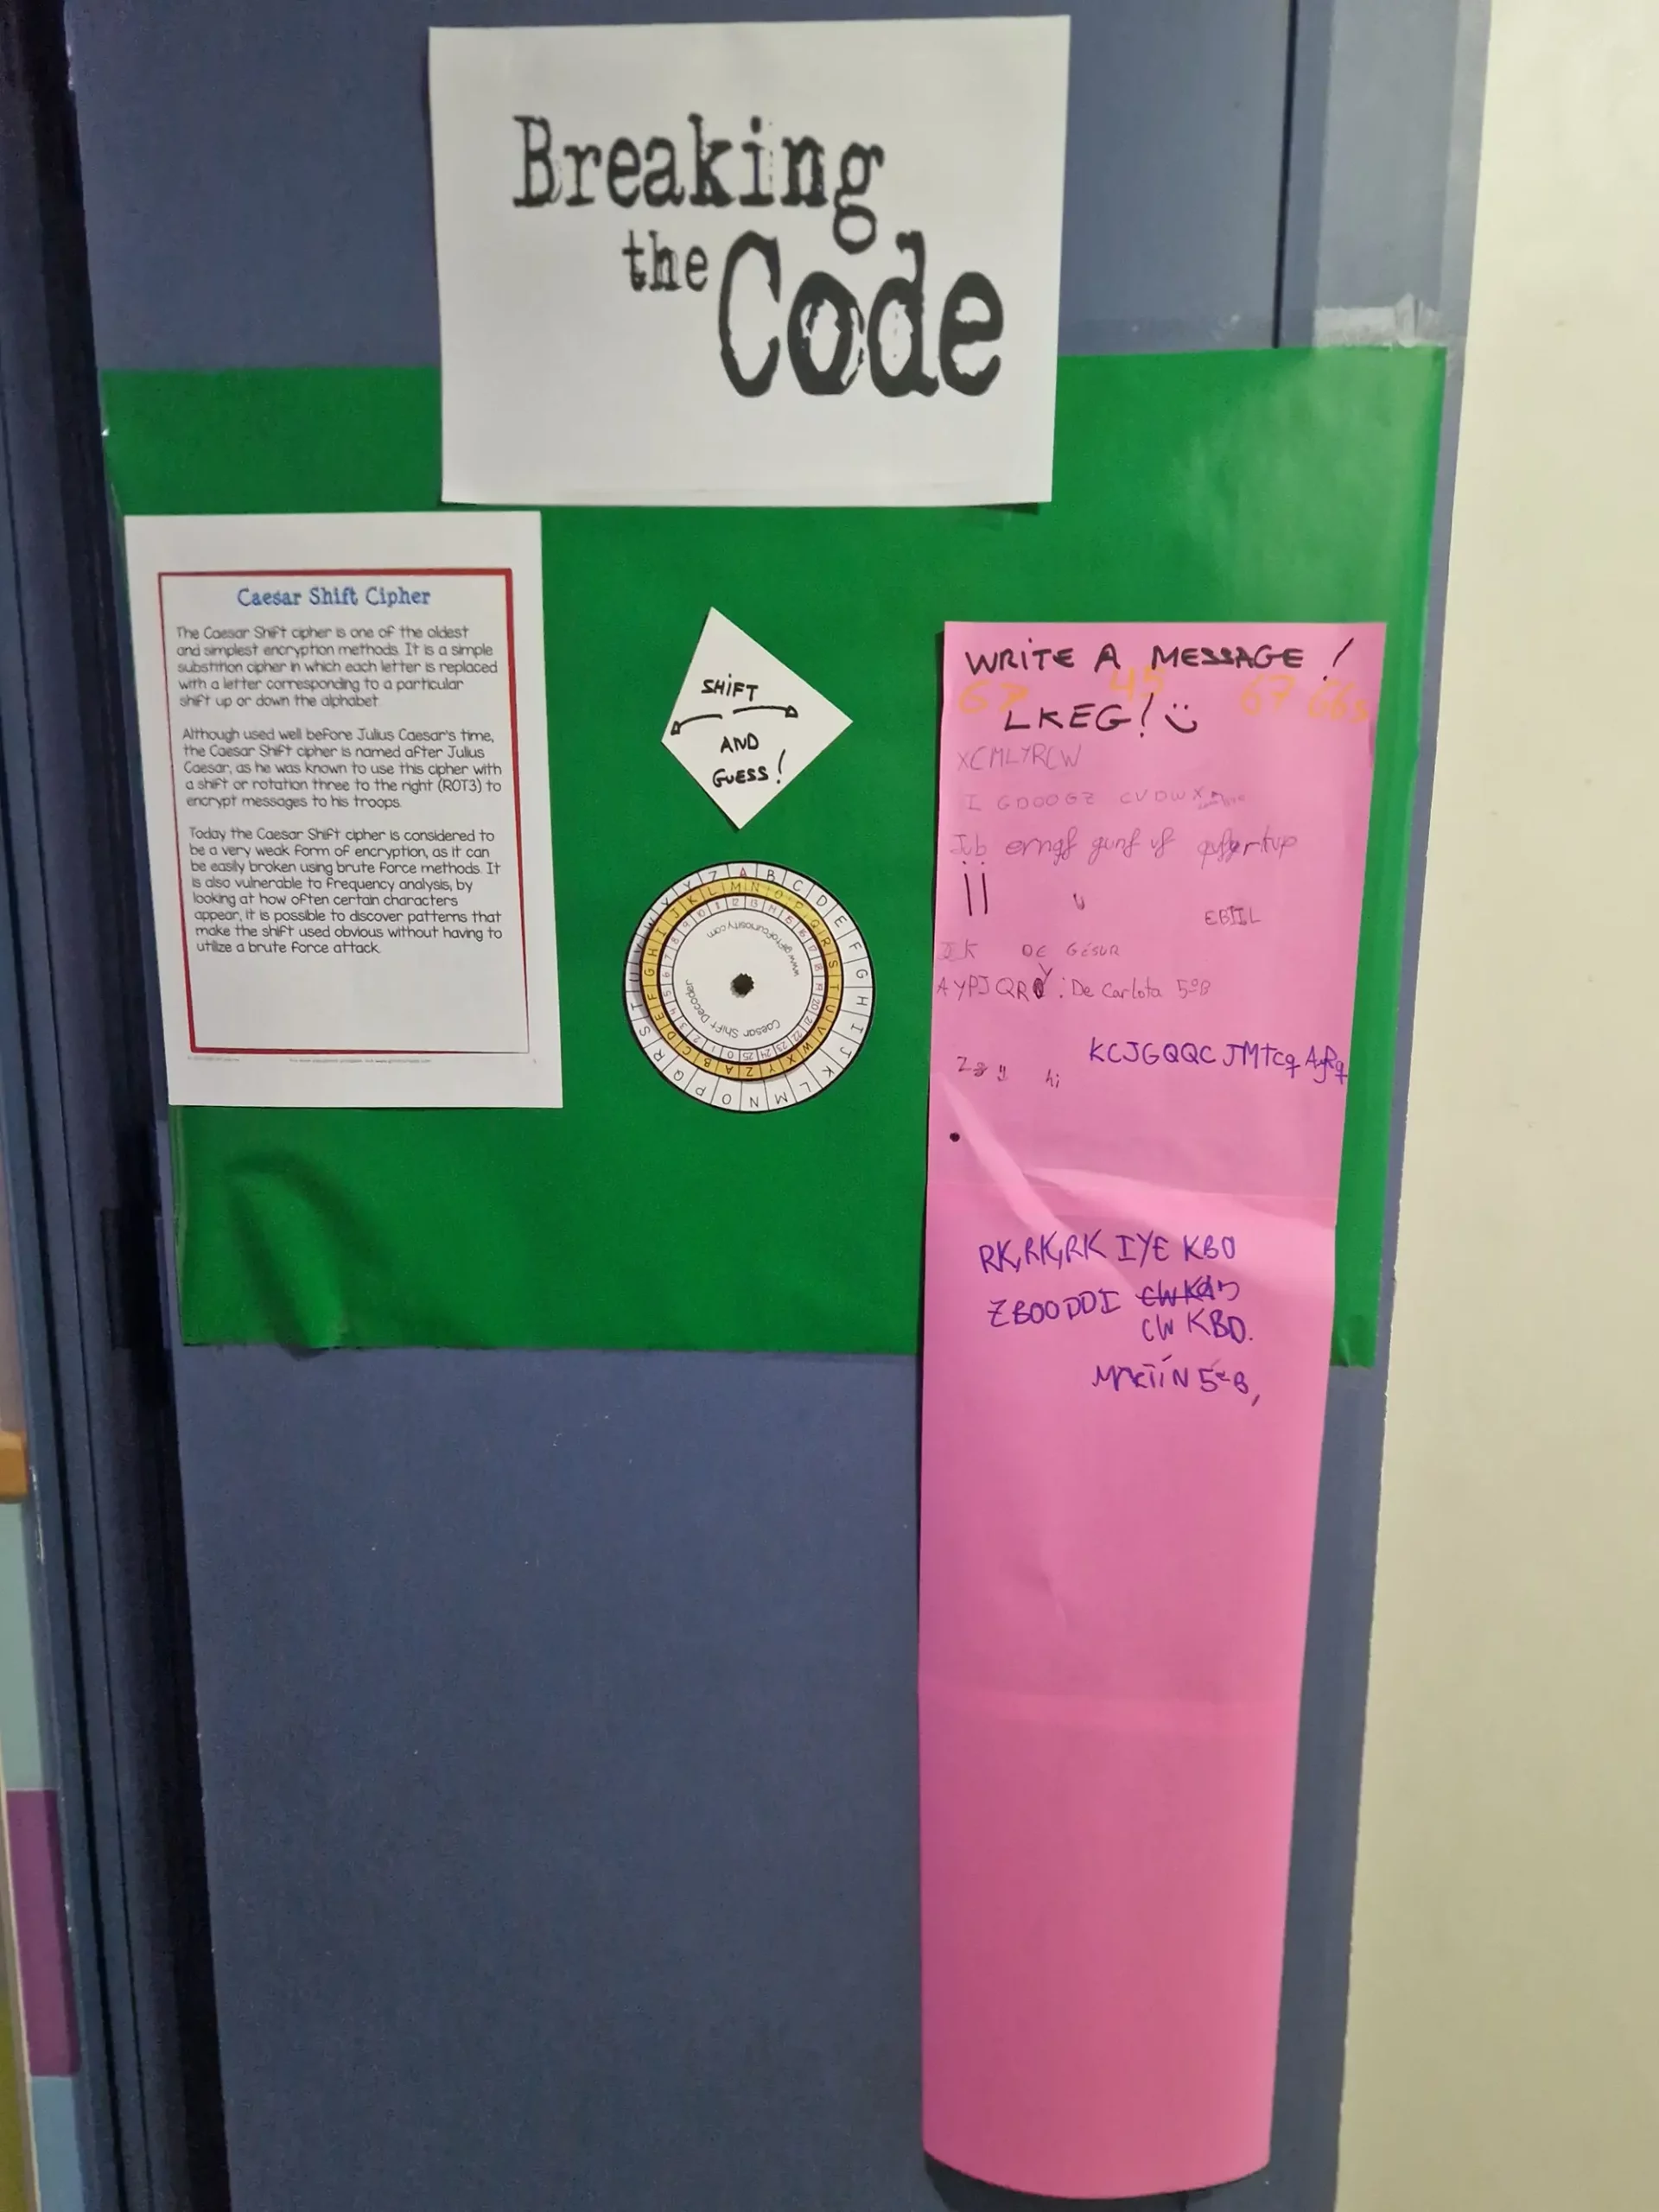 Breaking
the Code
Caesar Shift Cipher
The Caesar Shift cipher is one of the oldest
and simplest encryption methods. It is a simple
substition cipher in which each letter is replaced
with a letter corresponding to a particular
shift up or down the alphabet.
Although used well before Julius Caesar's time,
the Caesar Shift cipher is named after Julius
Caesar, as he was known to use this cipher with
a shift or rotation three to the right (ROT3) to
encrypt messages to his troops.
Today the Caesar Shift cipher is considered to
be a very weak form of encryption, as it can
be easily broken using brute force methods. It
is also vulnerable to frequency analysis, by
looking at how often certain characters
appear, it is possible to discover patterns that
make the shift used obvious without having to
utilize a brute force attack.
SHIFT
AND
GUESS!
A B C D E F G H I J K L M N O P Q R S T U V W X Y Z
M N O P Q R S T U V W X Y Z A B C D E F G H I J K L
www.giftofcuriosity.com
Caesar Shift Decoder
WRITE A MESSAGE!
67 45 67
LKEG! :)
XCMLYRCW
I GDOOGZ CVDWX
EBIIL
DE GÉSUR
AYPJQRY: De Carlota 5ºB
KCJGQQC
hi
RK,RK,RK IYE KBO
ZBOODDI
CW KBO.
5ºB,